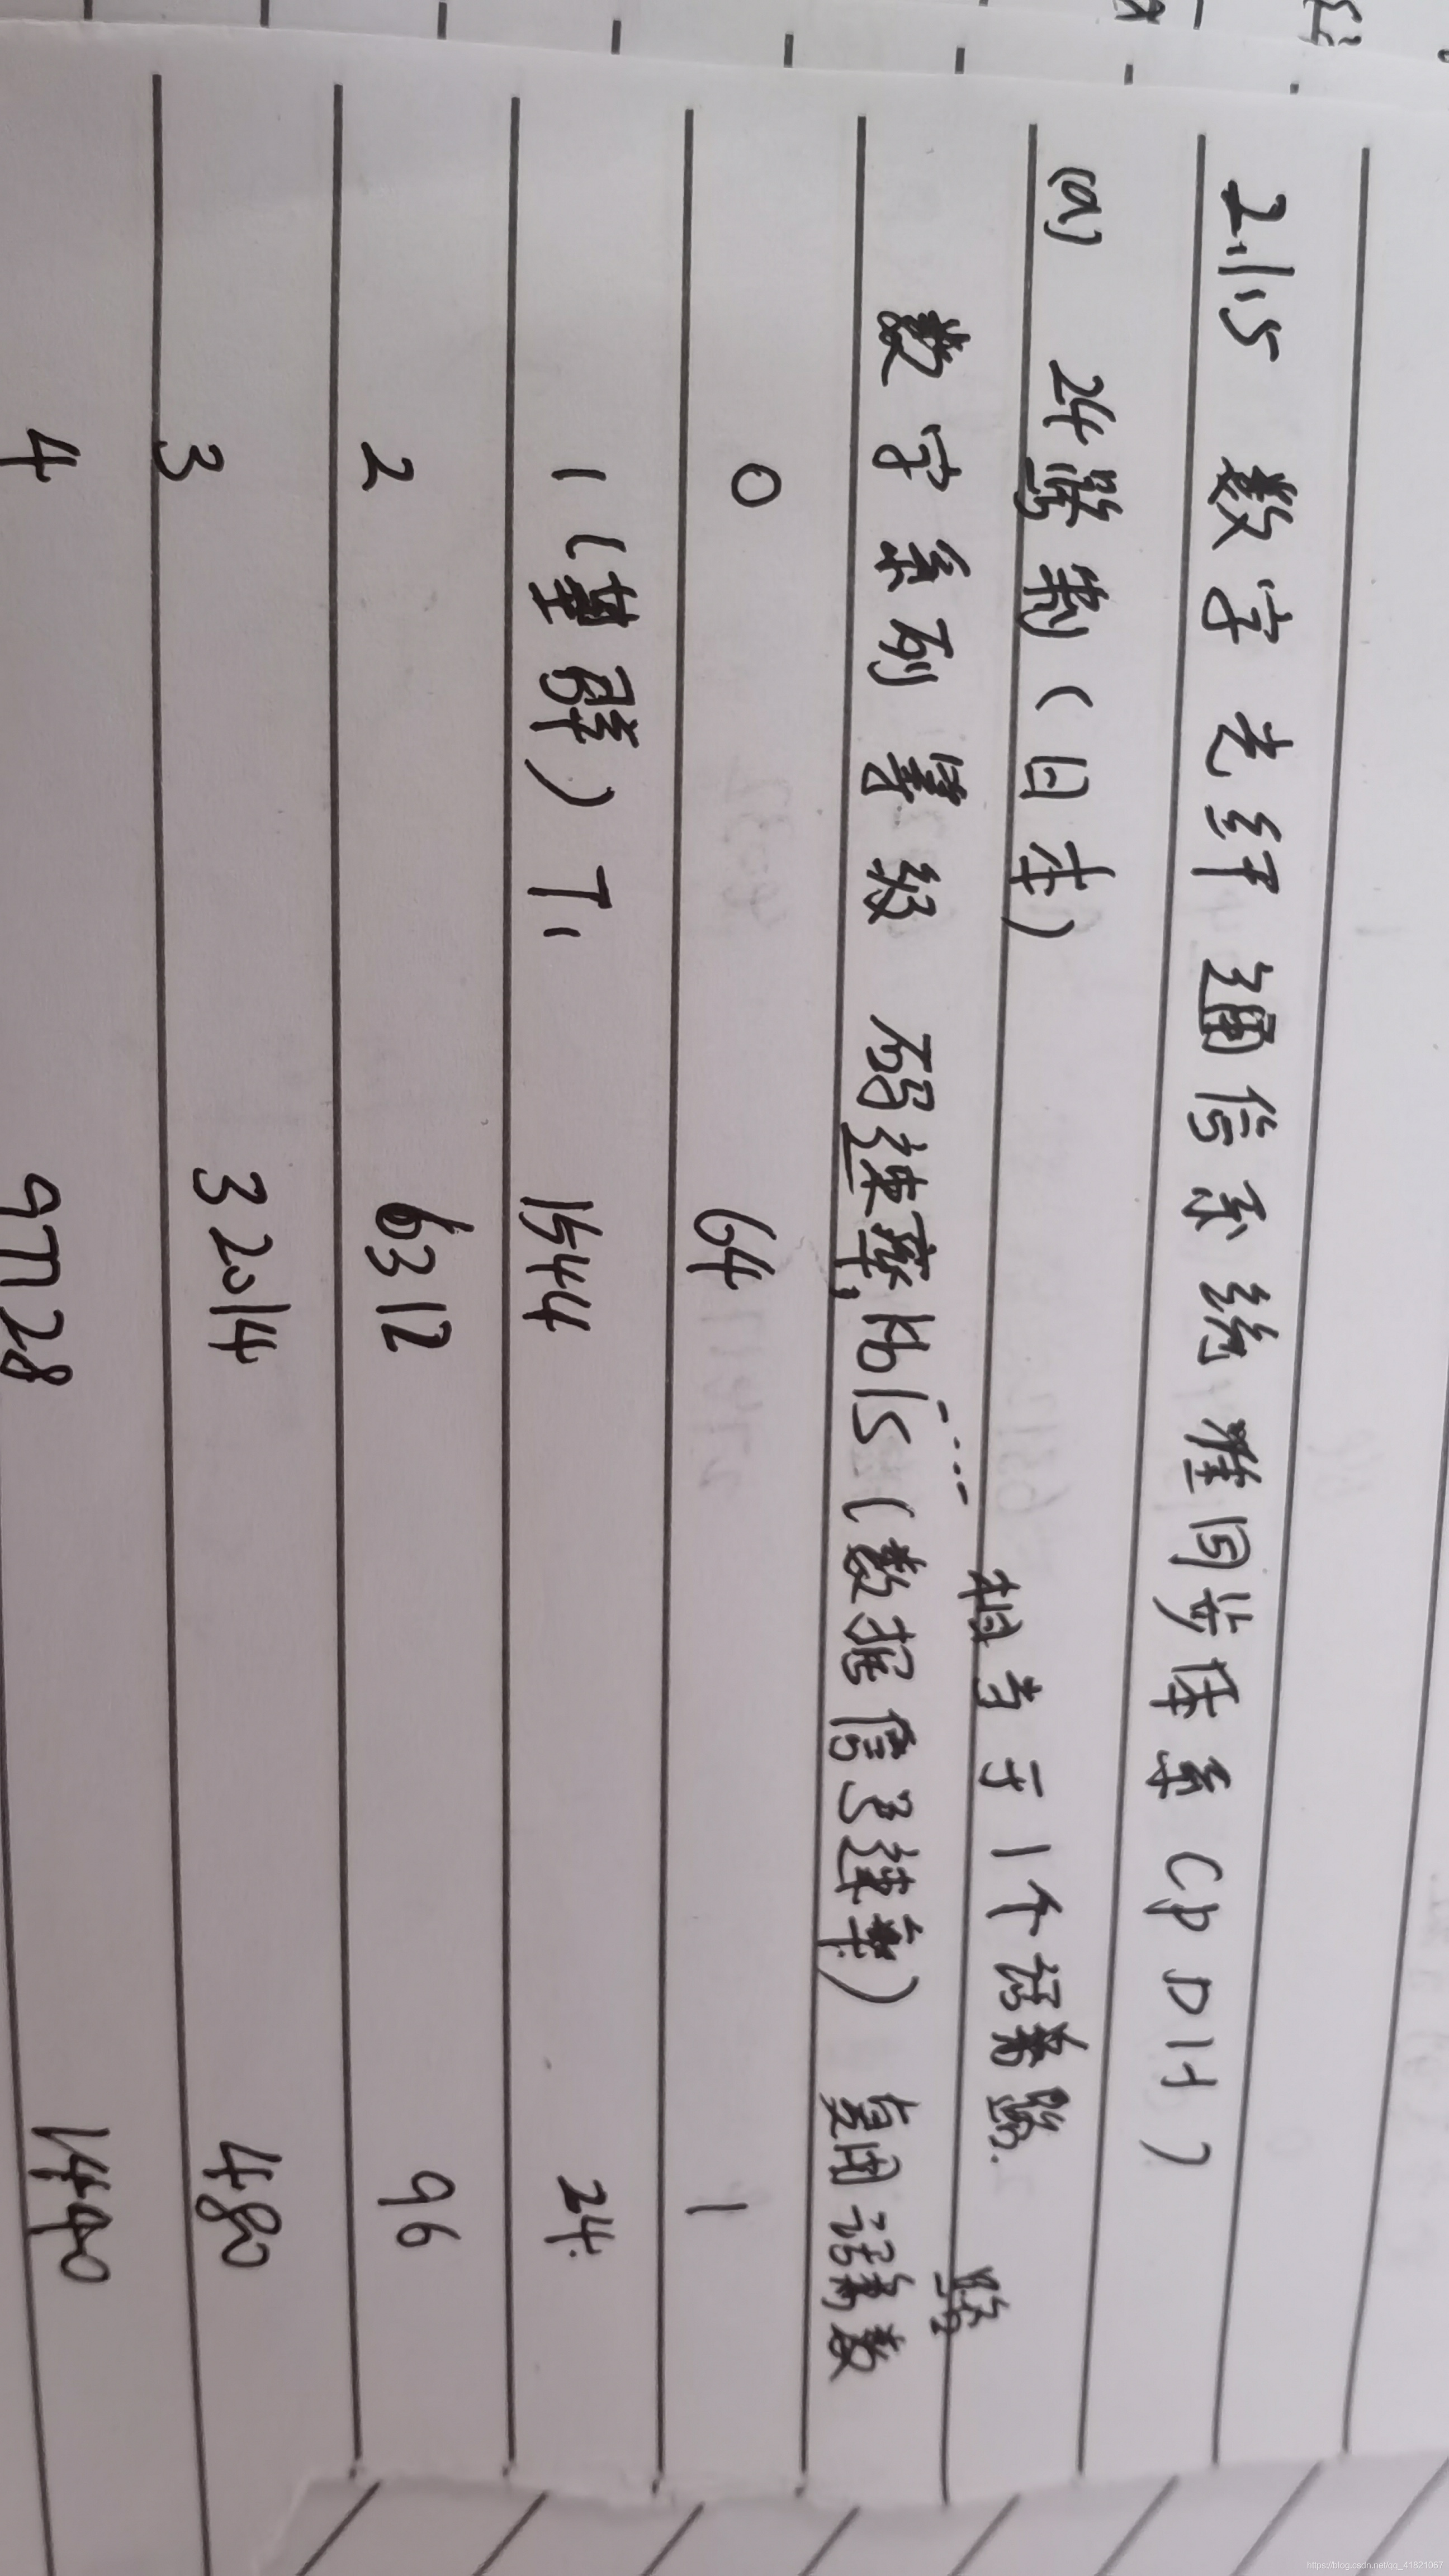 2.1.5 数字光纤通信系统准同步体系CPDH)
(a) 24路制(日本)
相当于1个话务路.
数字系列等级 码速率,kb/s(数据信号速率) 复用话务路数
0 64 1
1(基群)T1 1544 24.
2 6312 96
3 32014 480
4 97728 1440
https://blog.csdn.net/qq_41821067